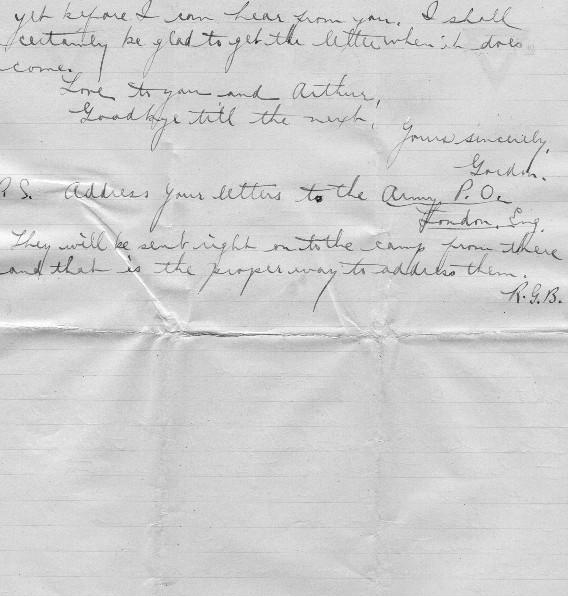 yet before I can hear from you. I shall
certainly be glad to get the letter when it does
come.
Love to you and Arthur,
Goodbye till the next,
Yours sincerely,
Gordon.
P.S. Address your letters to the Army P.O.
London, Eng.
They will be sent right on to the camp from there
and that is the proper way to address them.
R.G.B.